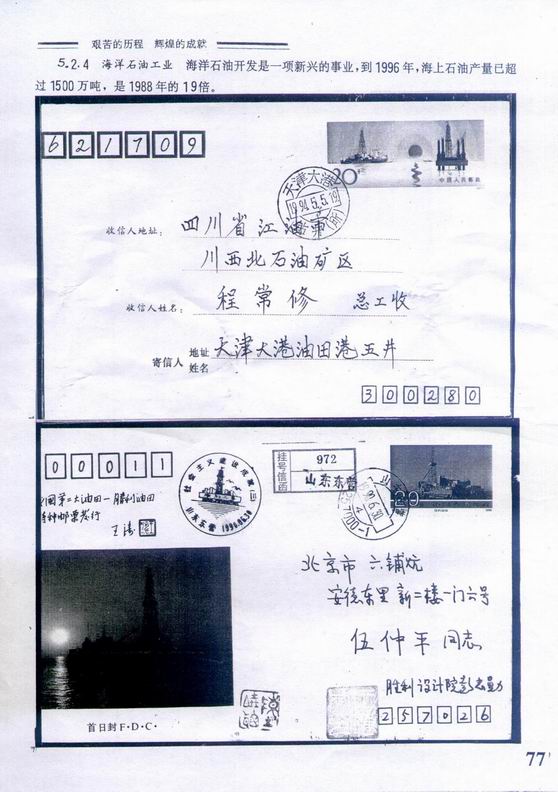 艰苦的历程 辉煌的成就
5.2.4 海洋石油工业 海洋石油开发是一项新兴的事业,到1996年,海上石油产量已超
过1500万吨,是1988年的19倍。
621709
20
中国人民邮政
天津大港
1994.5.5.19
收信人地址: 四川省江油市
川西北石油矿区
收信人姓名: 程常修 总工收
寄信人 地址 姓名 天津大港油田港五井
300280
00011
国第二大油田—胜利油田
特种邮票发行
王涛
社会主义建设成就(三)
山东东营 1990.6.30
挂号信函
972
山东东营
20
1990.6.30
北京市 六铺炕
安德东里 新二楼一门六号
伍仲平 同志
胜利设计院
257026
首日封F·D·C·
77